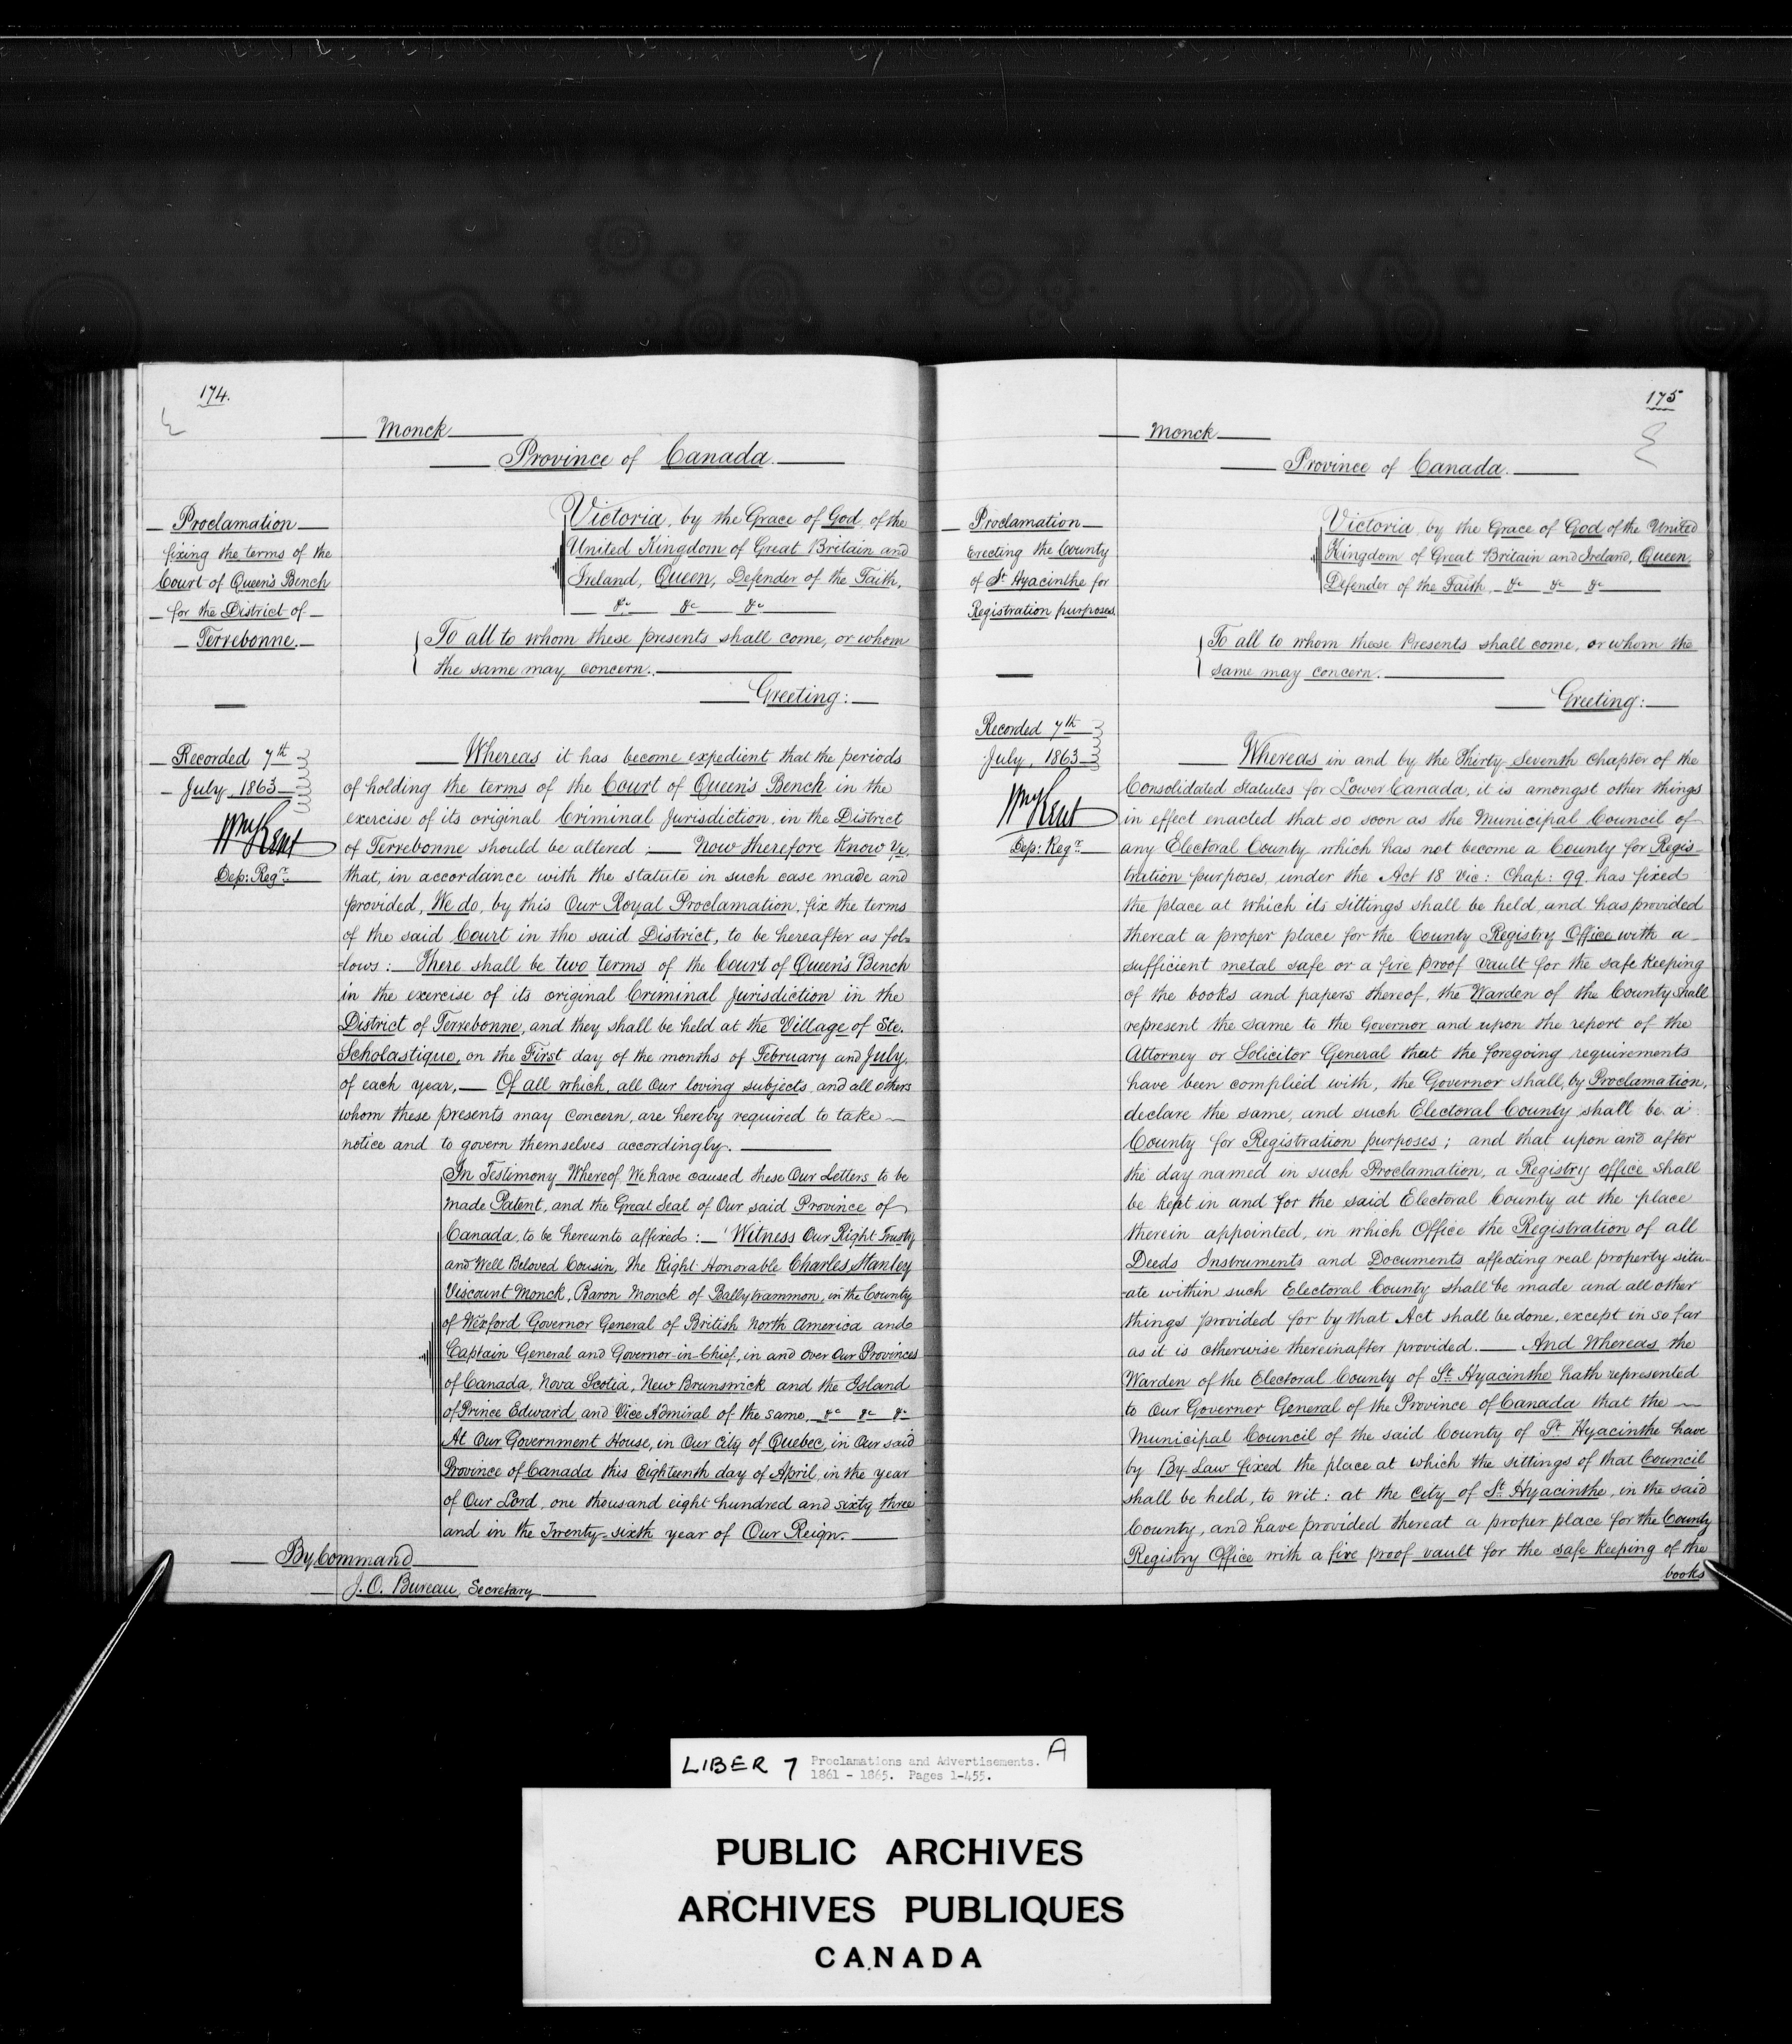 174.
Monck
Province of Canada.
Proclamation
fixing the terms of the
Court of Queen's Bench
for the District of
Terrebonne.
Recorded 7th
July 1863
WmKent
Dep: Regr.
Victoria, by the Grace of God, of the
United Kingdom of Great Britain and
Ireland, Queen, Defender of the Faith,
&c &c &c
To all to whom these presents shall come, or whom
the same may concern.
Greeting:
Whereas it has become expedient that the periods
of holding the terms of the Court of Queen's Bench in the
exercise of its original Criminal Jurisdiction, in the District
of Terrebonne should be altered: Now therefore Know Ye,
that, in accordance with the statute in such case made and
provided, We do, by this Our Royal Proclamation, fix the terms
of the said Court in the said District, to be hereafter as fol-
-lows: There shall be two terms of the Court of Queen's Bench
in the exercise of its original Criminal Jurisdiction in the
District of Terrebonne, and they shall be held at the Village of Ste.
Scholastique, on the First day of the months of February and July,
of each year. Of all which, all Our loving subjects, and all others
whom these presents may concern, are hereby required to take
notice and to govern themselves accordingly.
In Testimony Whereof, We have caused these Our Letters to be
made Patent, and the Great Seal of Our said Province of
Canada, to be hereunto affixed: Witness Our Right Trusty
and Well Beloved Cousin, the Right Honorable Charles Stanley
Viscount Monck, Baron Monck of Ballytrammon, in the County
of Wexford Governor General of British North America and
Captain General and Governor in Chief, in and over Our Provinces
of Canada, Nova Scotia, New Brunswick and the Island
of Prince Edward, and Vice Admiral of the same, &c &c &c
At Our Government House, in Our City of Quebec, in Our said
Province of Canada this Eighteenth day of April, in the year
of Our Lord, one thousand eight hundred and sixty three
and in the Twenty-sixth year of Our Reign.
By Command
J. O. Bureau, Secretary
175
Monck
Province of Canada.
Proclamation
Erecting the County
of St Hyacinthe for
Registration purposes.
Recorded 7th
July, 1863
WmKent
Dep: Regr.
Victoria, by the Grace of God of the United
Kingdom of Great Britain and Ireland, Queen,
Defender of the Faith, &c &c &c
To all to whom these Presents shall come, or whom the
same may concern.
Greeting:
Whereas in and by the Thirty Seventh Chapter of the
Consolidated Statutes for Lower Canada, it is amongst other things
in effect enacted that so soon as the Municipal Council of
any Electoral County which has not become a County for Regis-
tration purposes, under the Act 18 Vic: Chap: 99. has fixed
the place at which its sittings shall be held, and has provided
thereat a proper place for the County Registry Office with a
sufficient metal safe or a fire proof vault for the safe keeping
of the books and papers thereof, the Warden of the County shall
represent the same to the Governor and upon the report of the
Attorney or Solicitor General that the foregoing requirements
have been complied with, the Governor shall, by Proclamation,
declare the same, and such Electoral County shall be a
County for Registration purposes; and that upon and after
the day named in such Proclamation, a Registry office shall
be kept in and for the said Electoral County at the place
therein appointed, in which Office the Registration of all
Deeds Instruments and Documents affecting real property situ-
-ate within such Electoral County shall be made and all other
things provided for by that Act shall be done, except in so far
as it is otherwise thereinafter provided. And Whereas the
Warden of the Electoral County of St Hyacinthe hath represented
to Our Governor General of the Province of Canada that the
Municipal Council of the said County of St Hyacinthe have
by By-Law fixed the place at which the sittings of that Council
shall be held, to wit: at the City of St Hyacinthe, in the said
County, and have provided thereat a proper place for the County
Registry Office with a fire proof vault for the safe keeping of the
books
LIBER 7 Proclamations and Advertisements. A
1861 - 1865. Pages 1-455.
PUBLIC ARCHIVES
ARCHIVES PUBLIQUES
CANADA